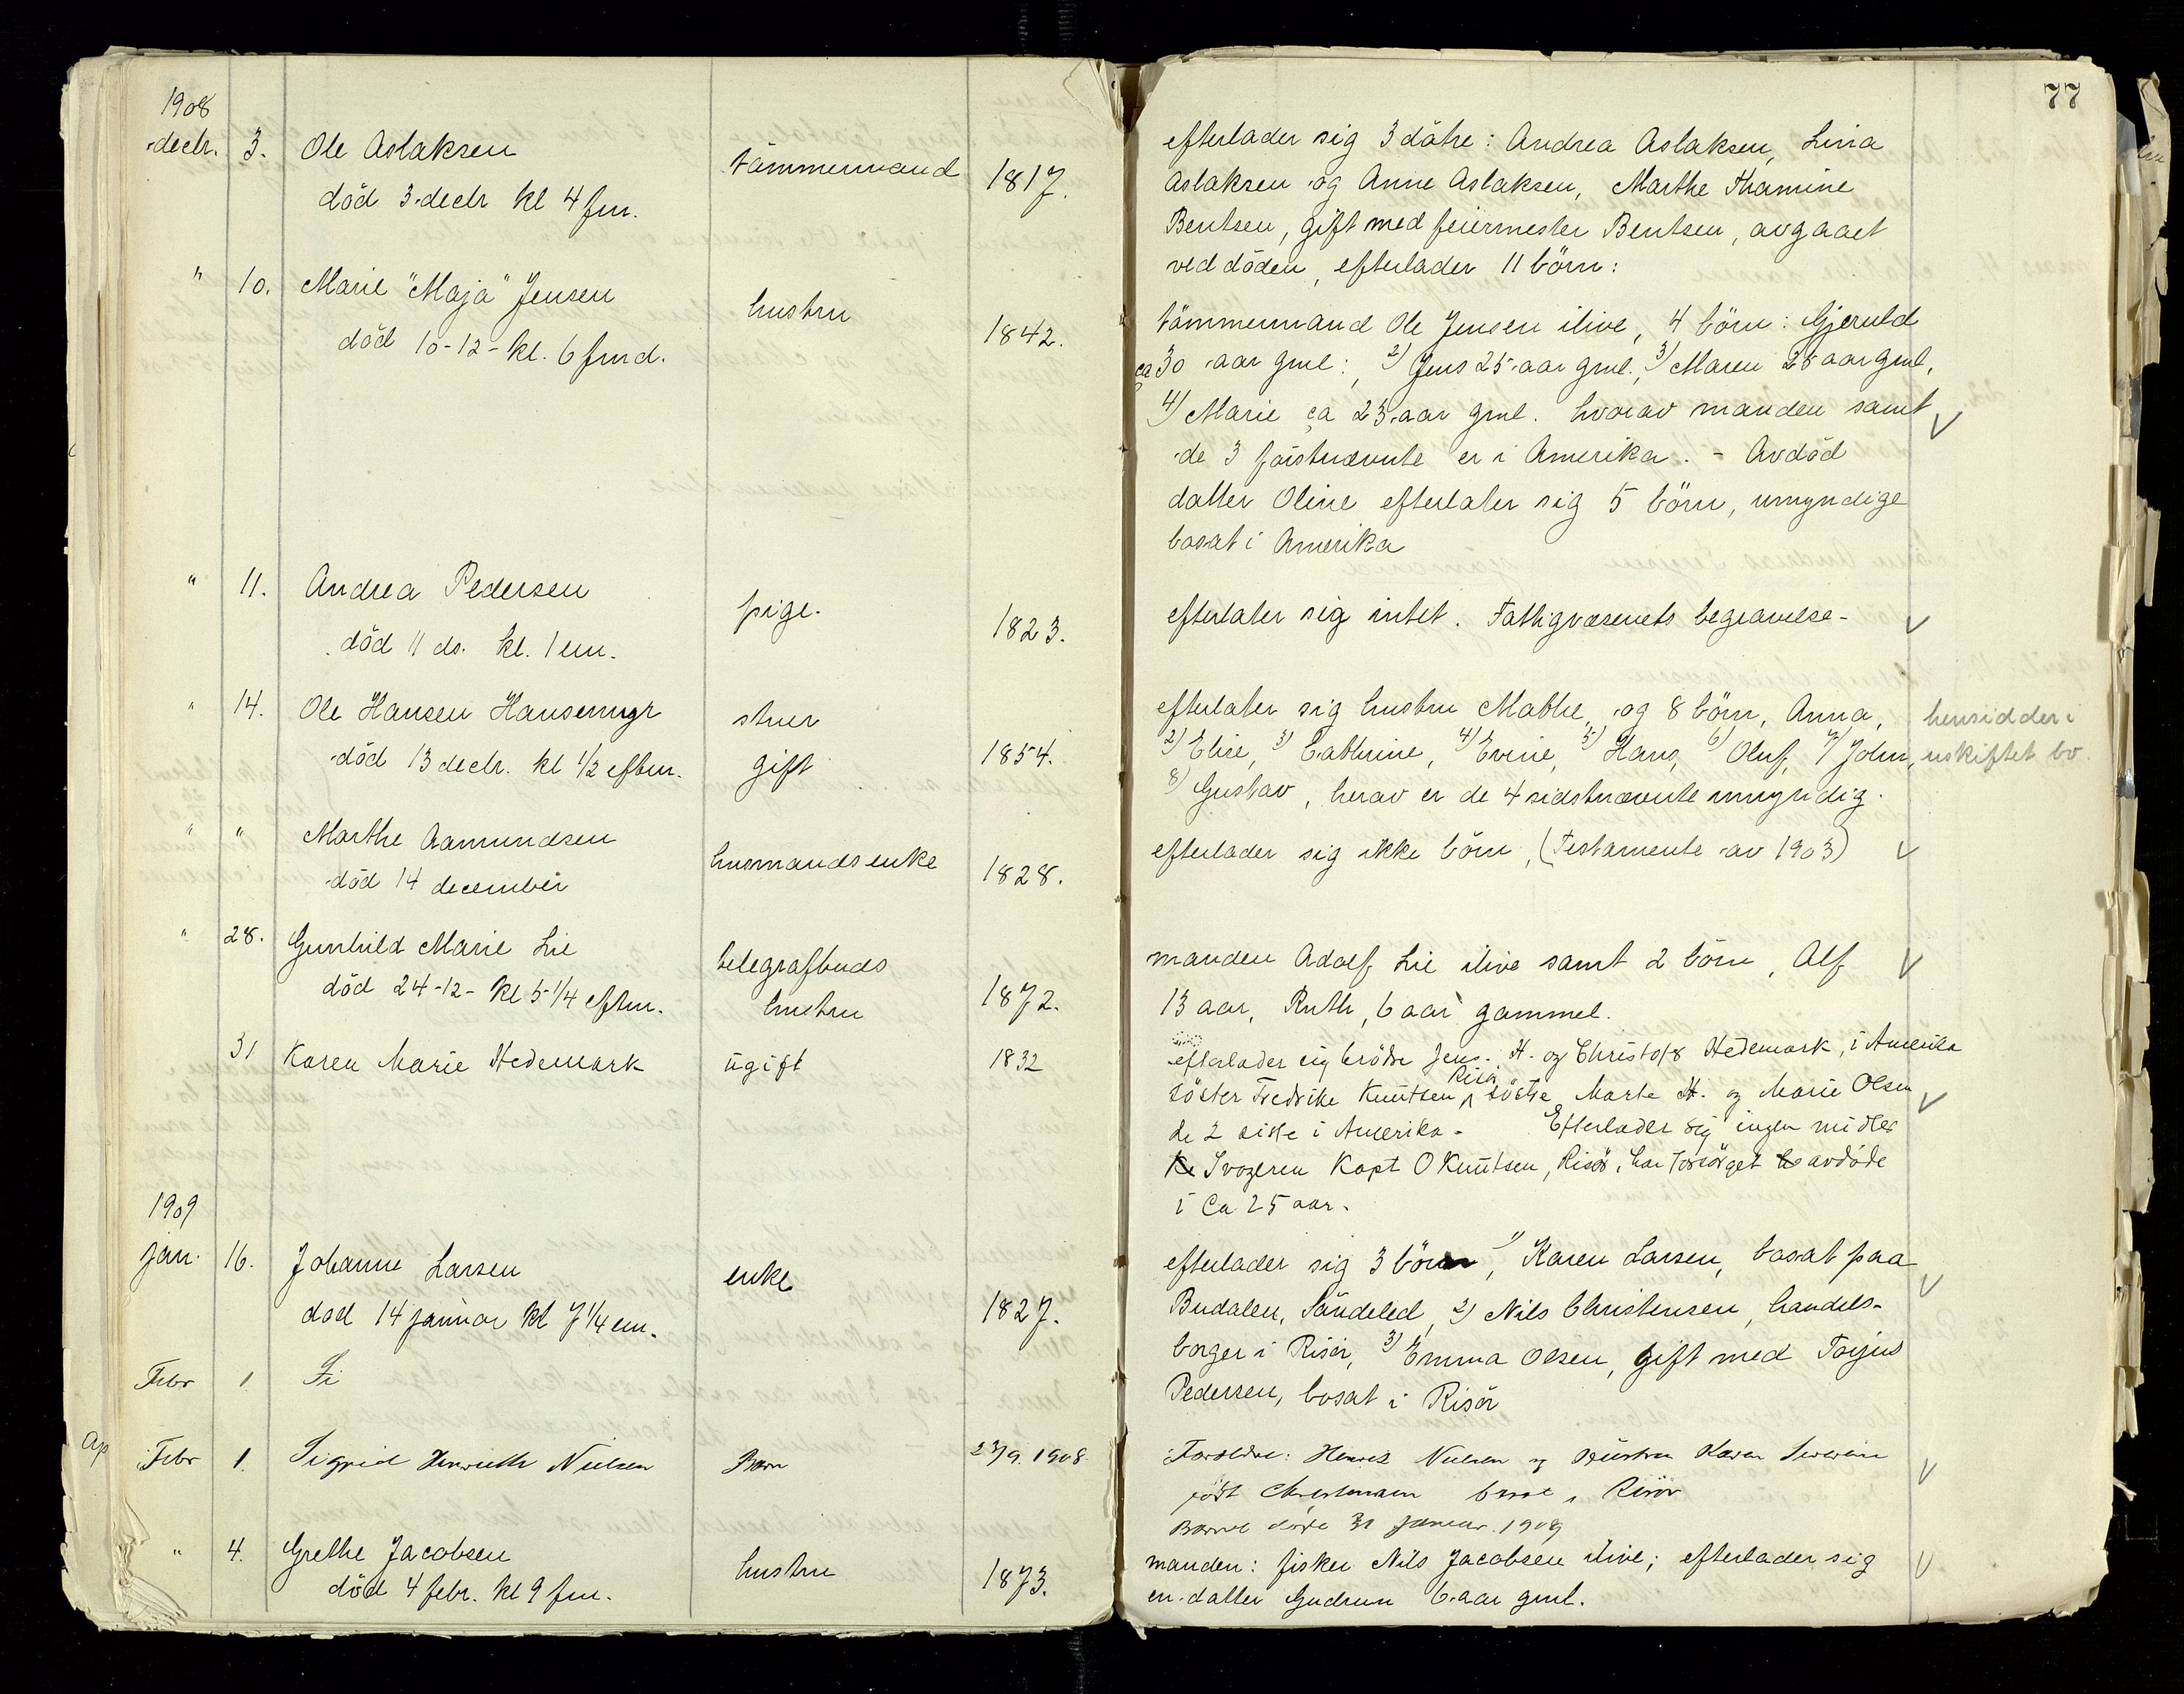 77
1908
decbr. 3. Ole Aslaksen tømmermand 1817.
död 3 decbr kl 4 fm.
efterlader sig 3 døtre: Andrea Aslaksen, Lina
Aslaksen og Anne Aslaksen, Marthe Thamine
Bentsen, gift med feiermester Bentsen, avgaaet
ved döden, efterlader 11 börn:
" 10. Marie "Maja" Jensen hustru 1842.
död 10-12- kl. 6 fmd.
tömmermand Ole Jensen ilive, 4 börn: Gjeruld
ca 30 aar gml:, 2) Jens 25 aar gml., 3) Maren 28 aar gml,
4) Marie ca 23 aar gml. hvorav manden samt
de 3 førstnævnte er i Amerika. - Avdöd
datter Oline efterlater sig 5 börn, umyndige
bosat i Amerika
" 11. Andrea Pedersen pige. 1823.
död 11 ds. kl. 1 em.
efterlater sig intet. Fattigvæsenets begravelse-
" 14. Ole Hansen Hansemyr stuer 1854.
död 13 decbr. kl 1/2 eftm. gift
efterlater sig hustru Mathe, og 8 börn, Anna,
2) Elise, 3) Cathrine, 4) Evine, 5) Hans, 6) Oluf, 7) John,
8) Gustav, herav er de 4 sidstnævnte umyndig.
hensidder i
uskiftet bo.
" " Marthe Aamundsen husmandsenke 1828.
död 14 december
efterlader sig ikke börn, (Testamente av 1903)
" 28. Gunhild Marie Lie telegrafbuds 1872.
död 24-12- kl 5 1/4 eftm. hustru
manden Adolf Lie ilive samt 2 börn, Alf
13 aar, Ruth, 6 aar gammel.
31 Karen Marie Hedemark ugift 1832
efterlader sig brödre Jens. H. og Christoffer Hedemark, i Amerika
söster Fredrike Knutsen Risör söstre Marte H. og Marie Olsen
de 2 siste i Amerika - Efterlader sig ingen midler
Svogeren Kapt O Knutsen, Risör, har forsörget avdöde
i Ca 25 aar.
1909
jan. 16. Johanne Larsen enke 1827.
død 14 januar kl 7 1/4 em.
efterlader sig 3 börn, 1) Karen Larsen, bosat paa
Budalen, Söndeled, 2) Nils Christensen, handels-
borger i Risör, 3) Emma Olsen, gift med Torjus
Pedersen, bosat i Risör
Febr 1. Si
Ap
Febr 1. Sigrid Henriette Nielsen Barn 23/9. 1908
Forældre: Henrik Nielsen og Hustru Karen Severine
født Christensen bosat i Risör
Barnet døde 31 Januar. 1909
" 4. Grethe Jacobsen hustru 1873.
död 4 febr. kl 9 fm.
manden: fisker Nils Jacobsen ilive; efterlader sig
en datter Gudrun 6 aar gml.